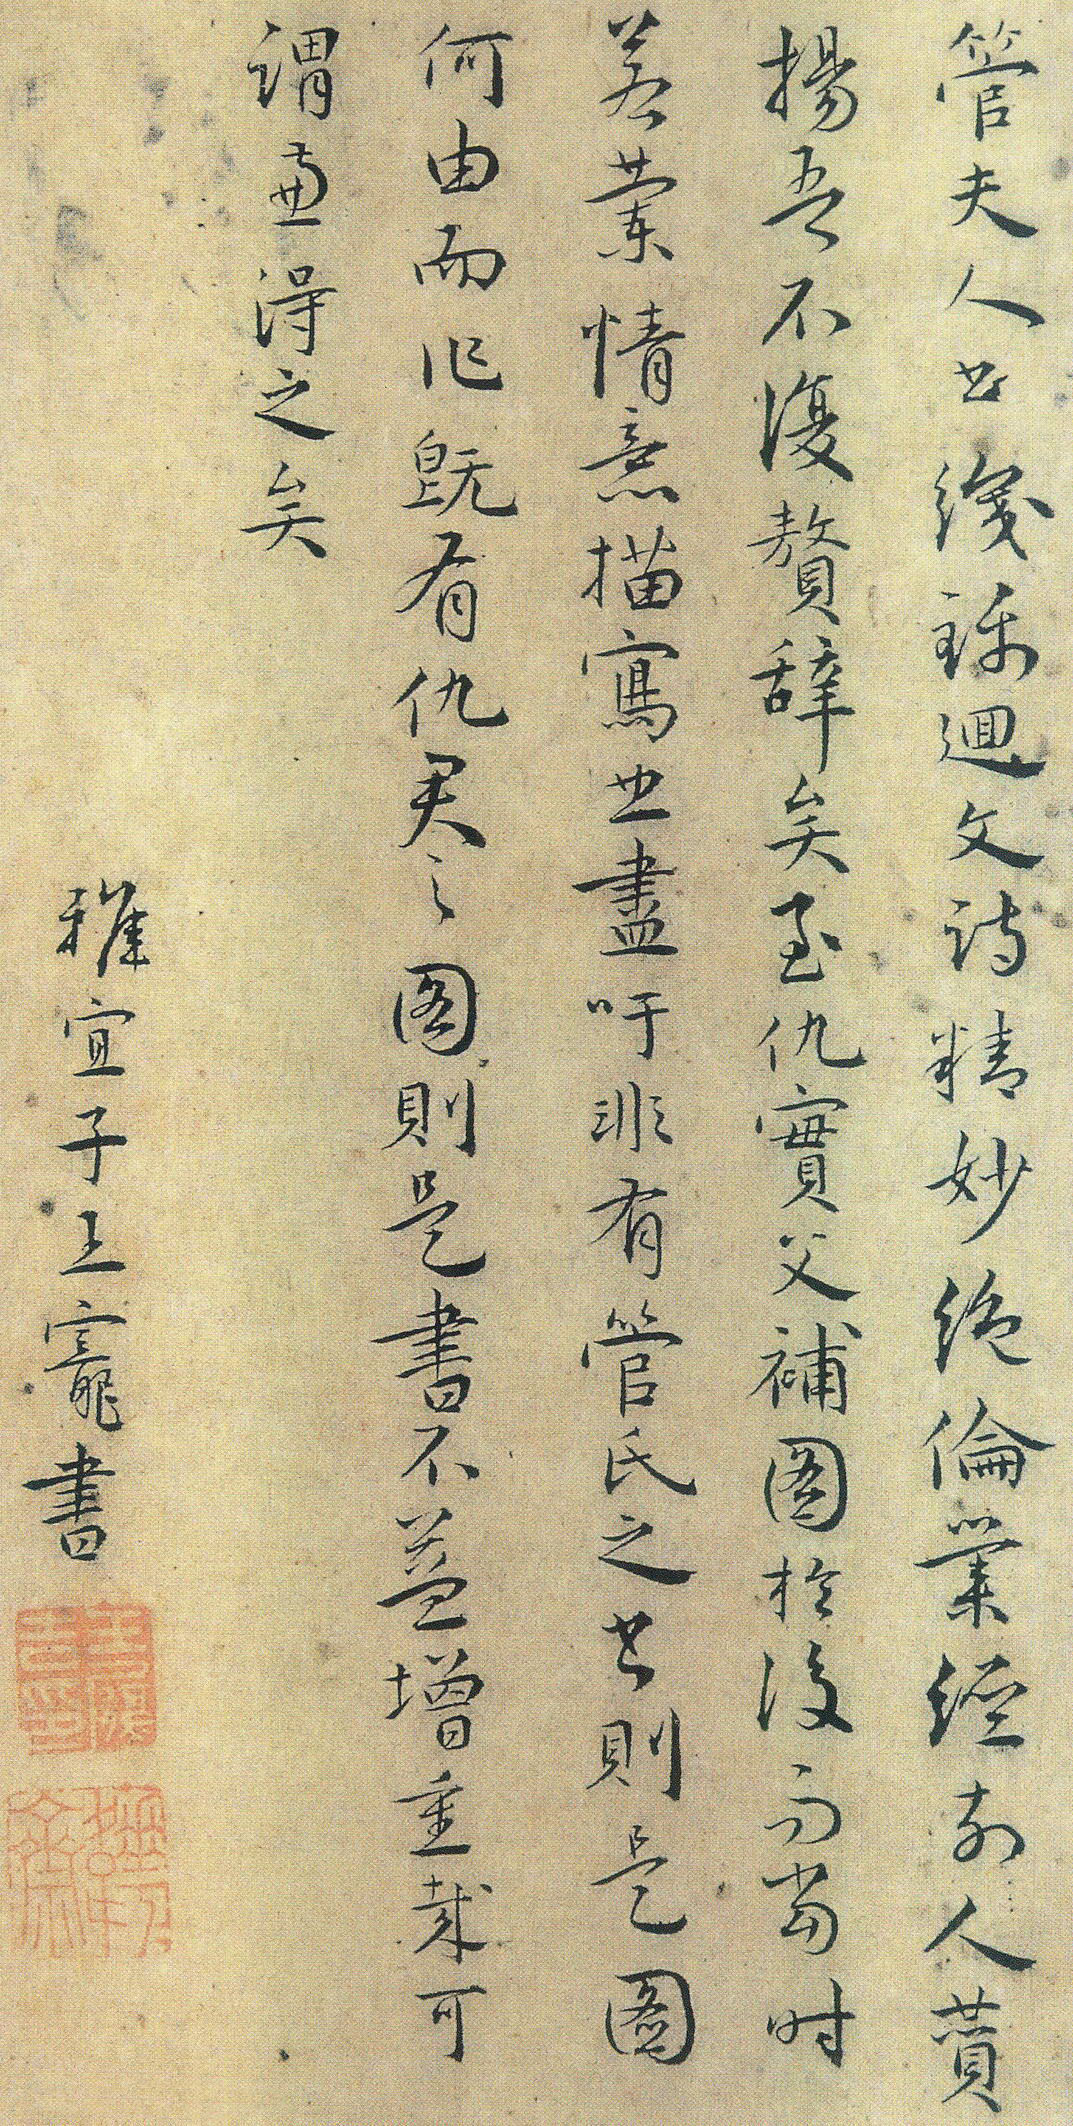 管夫人書織錦迴文詩精妙絕倫業經前人贊
揚吾不復贅辭矣至仇實父補圖於後而當時
若蘭情意描寫也盡吁非有管氏之書則是圖
何由而作既有仇君之圖則是書不益增重哉可
謂兩得之矣
雅宜子王寵書